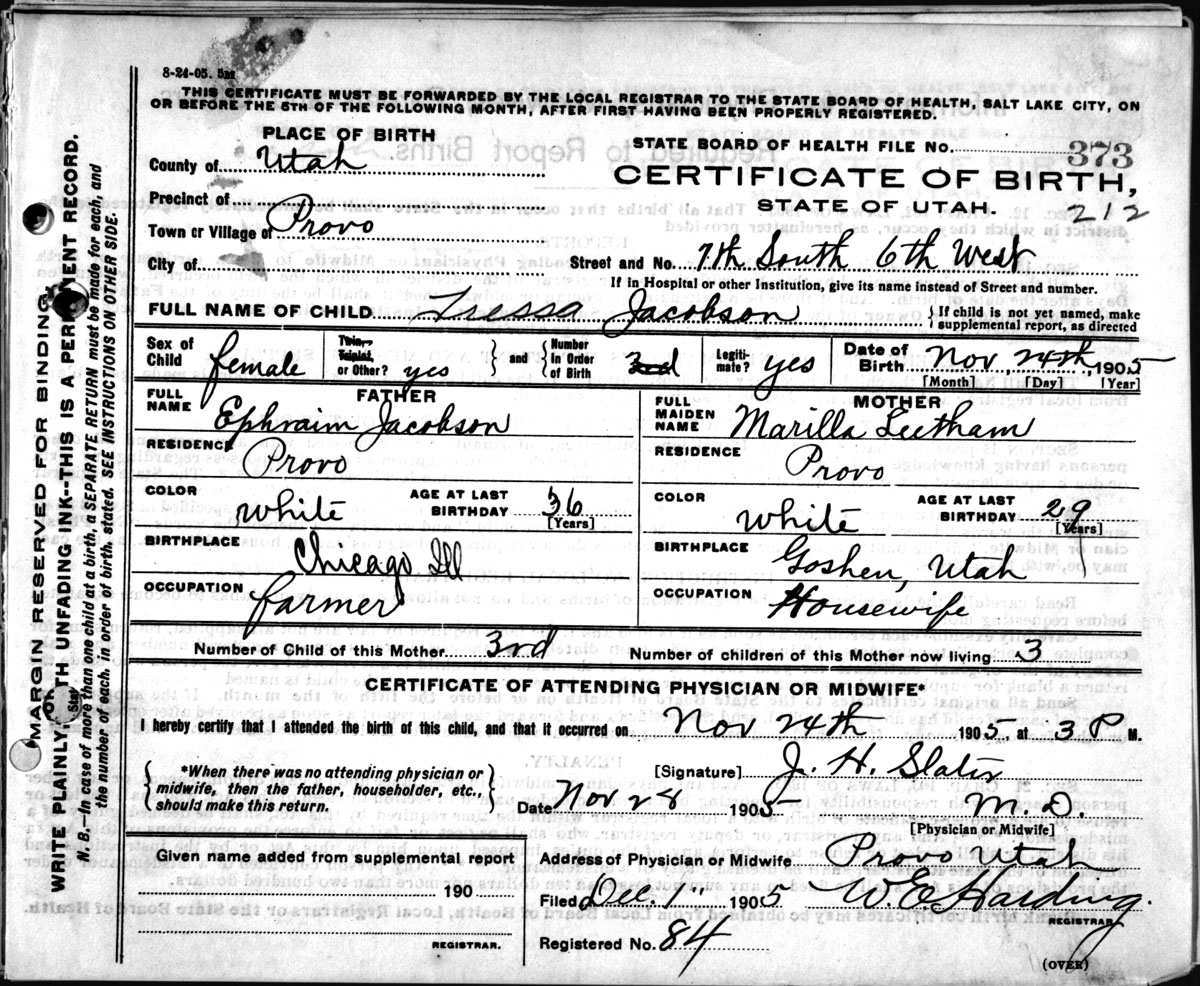 8-24-05. 5m
THIS CERTIFICATE MUST BE FORWARDED BY THE LOCAL REGISTRAR TO THE STATE BOARD OF HEALTH, SALT LAKE CITY, ON
OR BEFORE THE 5TH OF THE FOLLOWING MONTH, AFTER FIRST HAVING BEEN PROPERLY REGISTERED.
PLACE OF BIRTH
County of Utah
Precinct of
Town or Village of Provo
City of
STATE BOARD OF HEALTH FILE NO. 373
CERTIFICATE OF BIRTH,
STATE OF UTAH. 212
Street and No. 7th South 6th West
If in Hospital or other Institution, give its name instead of Street and number.
FULL NAME OF CHILD Tressa Jacobson { If child is not yet named, make supplemental report, as directed
Sex of Child female Twin, Triplet, or Other? yes } and { Number in Order of Birth 3rd Legitimate? yes Date of Birth Nov 24th, 1905
[Month] [Day] [Year]
FATHER
FULL NAME Ephraim Jacobson
RESIDENCE Provo
COLOR white AGE AT LAST BIRTHDAY 36 [Years]
BIRTHPLACE Chicago Ill
OCCUPATION farmer
MOTHER
FULL MAIDEN NAME Marilla Leetham
RESIDENCE Provo
COLOR white AGE AT LAST BIRTHDAY 29 [Years]
BIRTHPLACE Goshen, Utah
OCCUPATION Housewife
Number of Child of this Mother 3rd Number of children of this Mother now living 3
CERTIFICATE OF ATTENDING PHYSICIAN OR MIDWIFE*
I hereby certify that I attended the birth of this child, and that it occurred on Nov 24th 1905, at 3 P M.
{ *When there was no attending physician or midwife, then the father, householder, etc., should make this return. }
[Signature] J. H. Slater
Date Nov 28 1905 M. D
[Physician or Midwife]
Given name added from supplemental report
190
REGISTRAR.
Address of Physician or Midwife Provo Utah
Filed Dec. 1" 1905 W. E. Harding.
REGISTRAR.
Registered No. 84
(OVER)
MARGIN RESERVED FOR BINDING
WRITE PLAINLY WITH UNFADING INK--THIS IS A PERMANENT RECORD.
N. B.--In case of more than one child at a birth, a SEPARATE RETURN must be made for each, and
the number of each, in order of birth, stated. SEE INSTRUCTIONS ON OTHER SIDE.